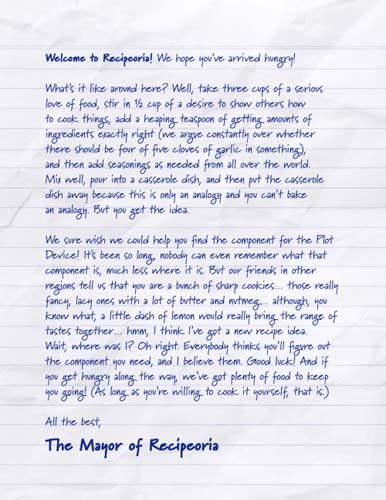 Welcome to Recipeoria! We hope you've arrived hungry!
What's it like around here? Well, take three cups of a serious
love of food, stir in ½ cup of a desire to show others how
to cook things, add a heaping teaspoon of getting amounts of
ingredients exactly right (we argue constantly over whether
there should be four of five cloves of garlic in something),
and then add seasonings as needed from all over the world.
Mix well, pour into a casserole dish, and then put the casserole
dish away because this is only an analogy and you can't bake
an analogy. But you get the idea.
We sure wish we could help you find the component for the Plot
Device! It's been so long, nobody can even remember what that
component is, much less where it is. But our friends in other
regions tell us that you are a bunch of sharp cookies... those really
fancy, lacy ones with a lot of butter and nutmeg... although, you
know what, a little dash of lemon would really bring the range of
tastes together... hmm, I think I've got a new recipe idea.
Wait, where was I? Oh right. Everybody thinks you'll figure out
the component you need, and I believe them. Good luck! And if
you get hungry along the way, we've got plenty of food to keep
you going! (As long as you're willing to cook it yourself, that is.)
All the best,
The Mayor of Recipeoria